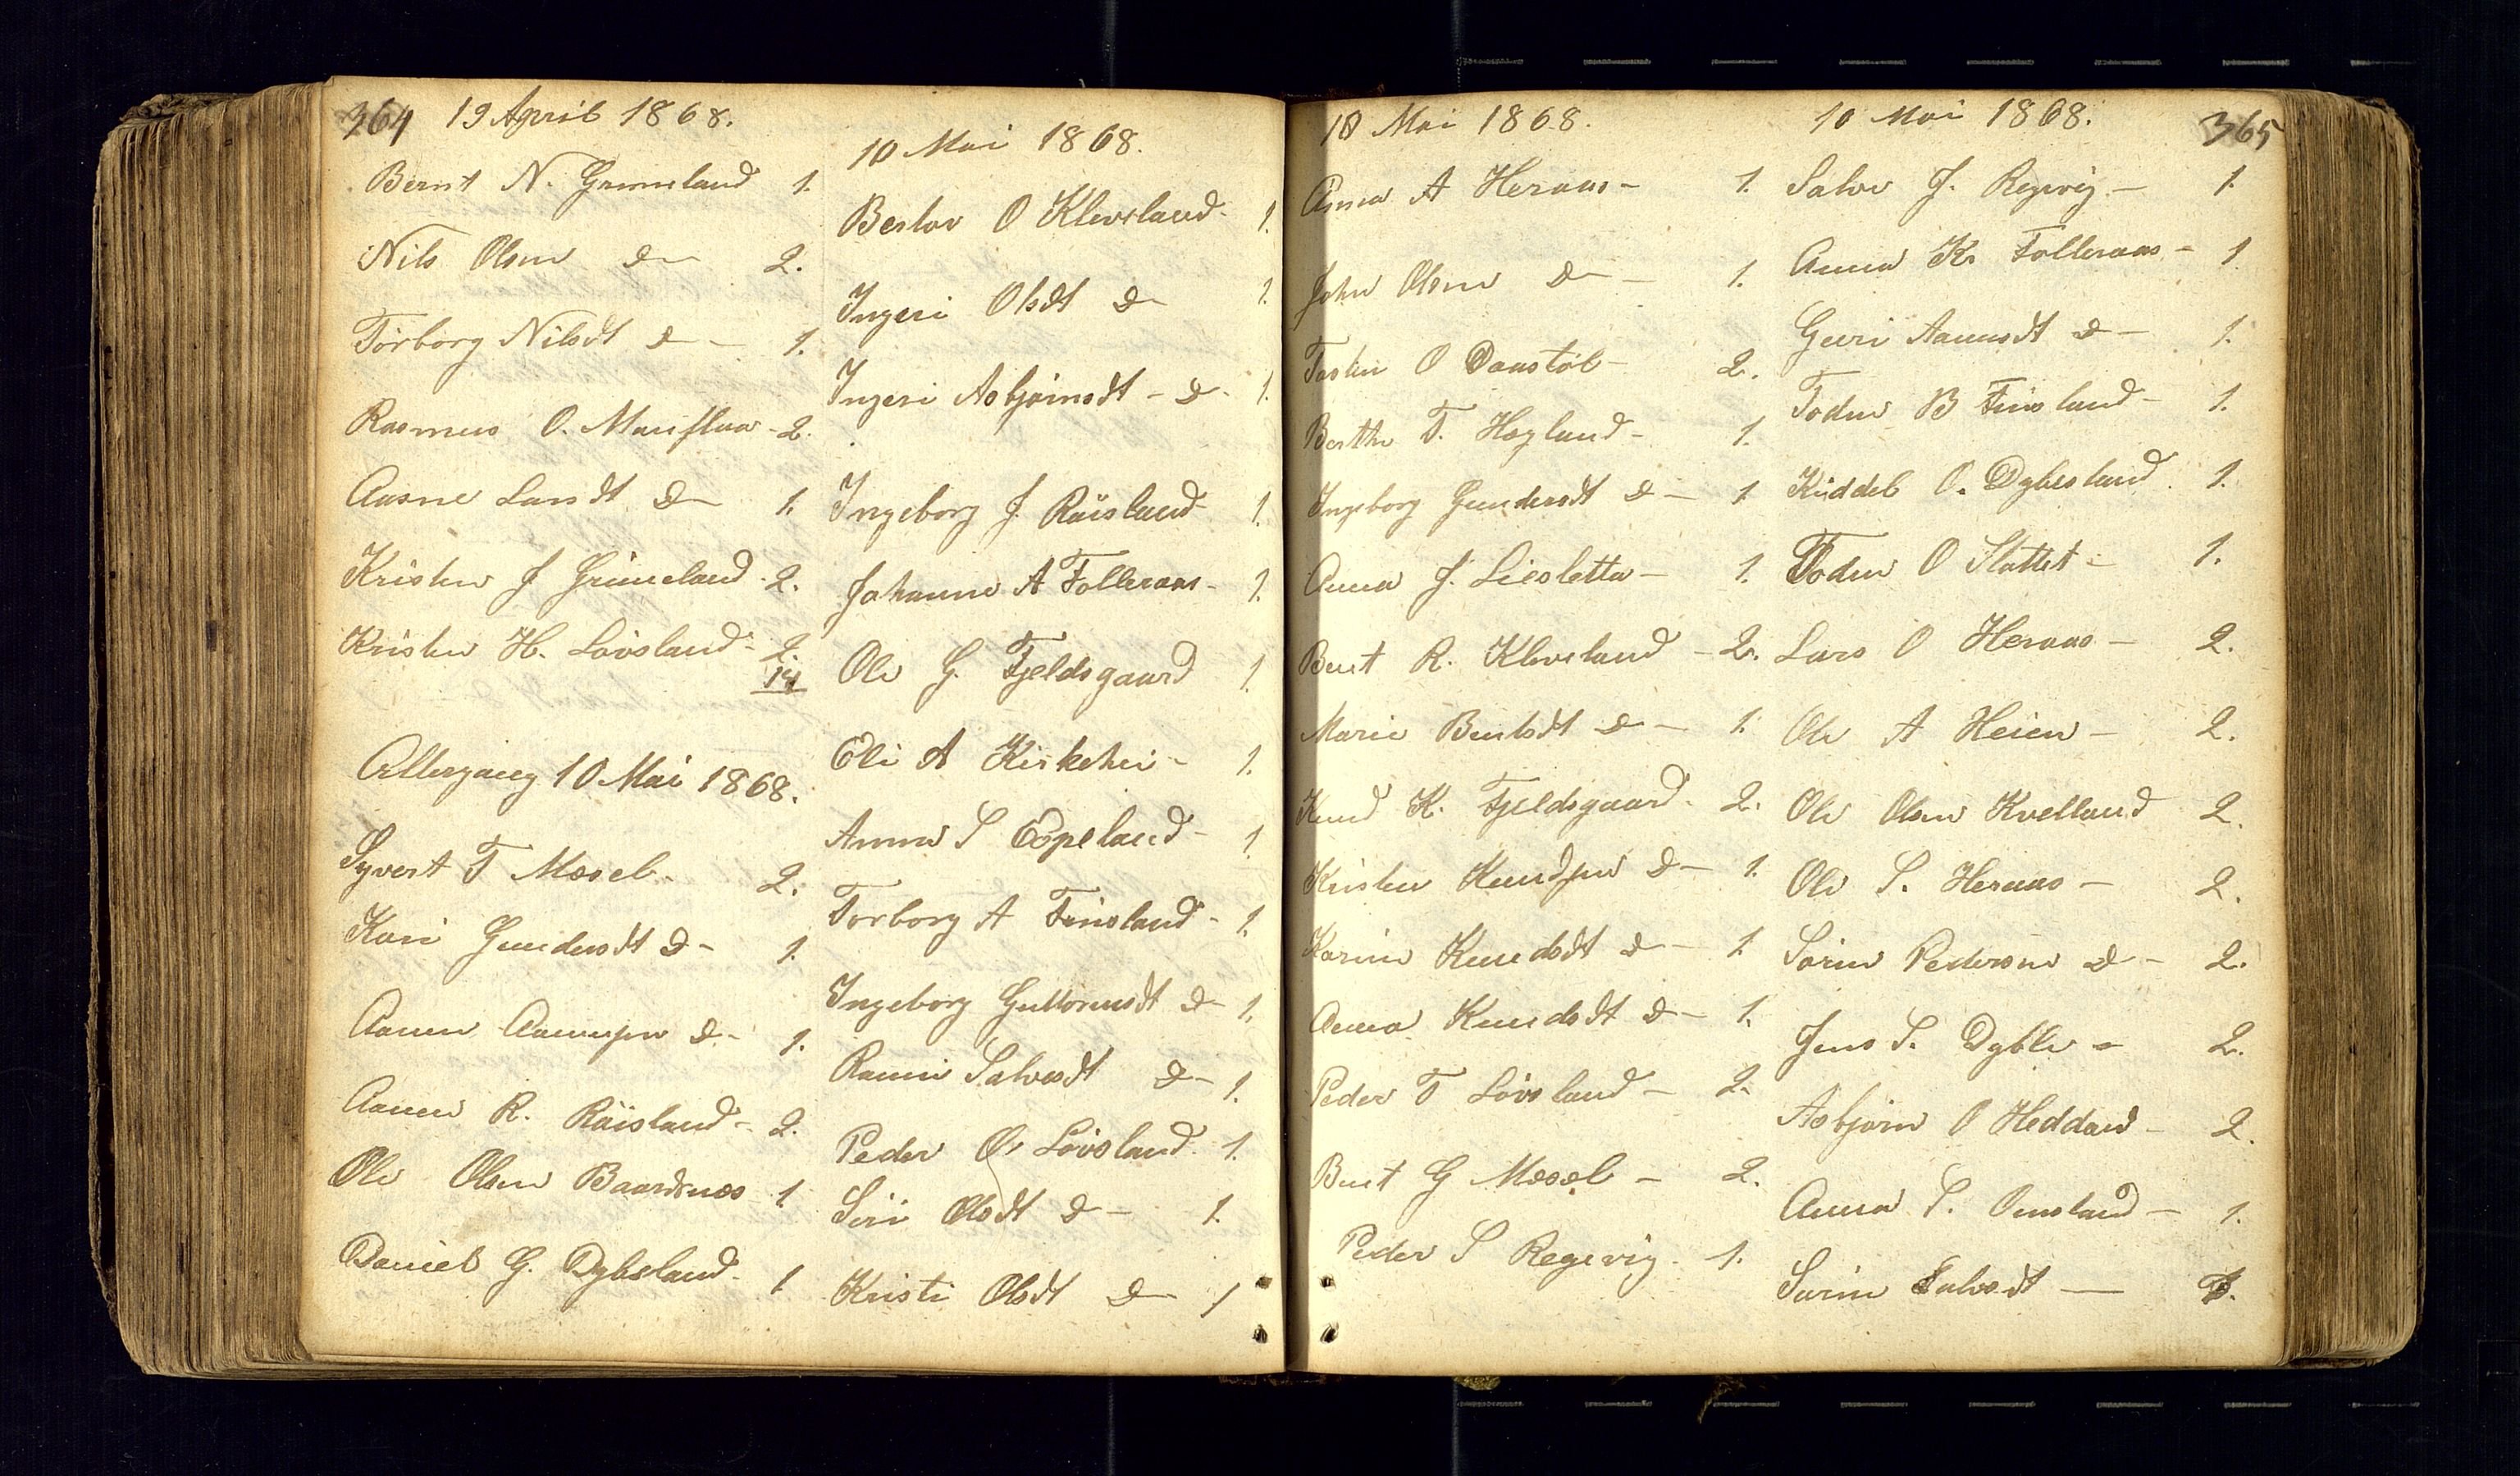 364 19 April 1868.
Bernt N. Grimeland 1.
Nils Olsen d 2.
Torborg Nilsdt d - 1.
Rasmus O. Mariflaa - 2.
Aasne Larsdt d 1.
Kristen J Grimeland - 2.
Kristen H. Løvsland - 2.
14
Altergang 10 Mai 1868.
Syvert T Mosel - 2.
Kari Gundersdt d - 1.
Aanen Aanensen d - 1.
Aanen R. Røisland - 2.
Ole Olsen Baardsnes 1.
Daniel G. Dybesland - 1
10 Mai 1868.
O Kleveland - 1.
Ingeri Olsdt d 1.
Ingeri Asbjørnsdt - d - 1.
Ingeborg J. Røisland - 1.
Johanne A Folleraas - 1.
Ole G. Fjeldsgaard 1.
Eli A Kirkehei - 1.
Anna S Eppeland - 1.
Torborg A Finsland - 1.
Ingeborg Guttormsdt d - 1.
Salvesdt d - 1.
Peder O. Løvsland - 1.
Siri Olsdt d - 1.
Kristi Olsdt d - 1
10 Mai 1868.
Anna A Heraas - 1.
John Olsen d - 1.
O Daastøl - 2.
Berthe T. Høyland - 1.
Ingeborg Gundersdt d - 1
Anna J. Liesletta - 1.
Bent R. Kleveland - 2.
Marie Bentsdt d - 1.
Knud K. Fjeldsgaard - 2.
Kristen Knudsen d - 1.
Karine Knudsdt d - 1.
Anna Knudsdt d - 1.
Peder T Løvsland - 2.
Bent G Mosel - 2.
Peder S Regevig - 1.
10 Mai 1868. 365
Salve J. Regevig - 1.
Anna K. Folleraas - 1
Guri Aanensdt d - 1.
Todne B Finsland - 1.
Kiddel O. Dybesland - 1.
Todne O Slottet - 1.
Lars O Heraas - 2.
Ole A Heien - 2.
Ole Olsen Kvelland 2.
Ole S. Heraas - 2.
Søren Pedersen d - 2.
Jens S. - 2.
Asbjørn O Heddan - 2.
Anna S. - 1.
Salvesdt — 1.